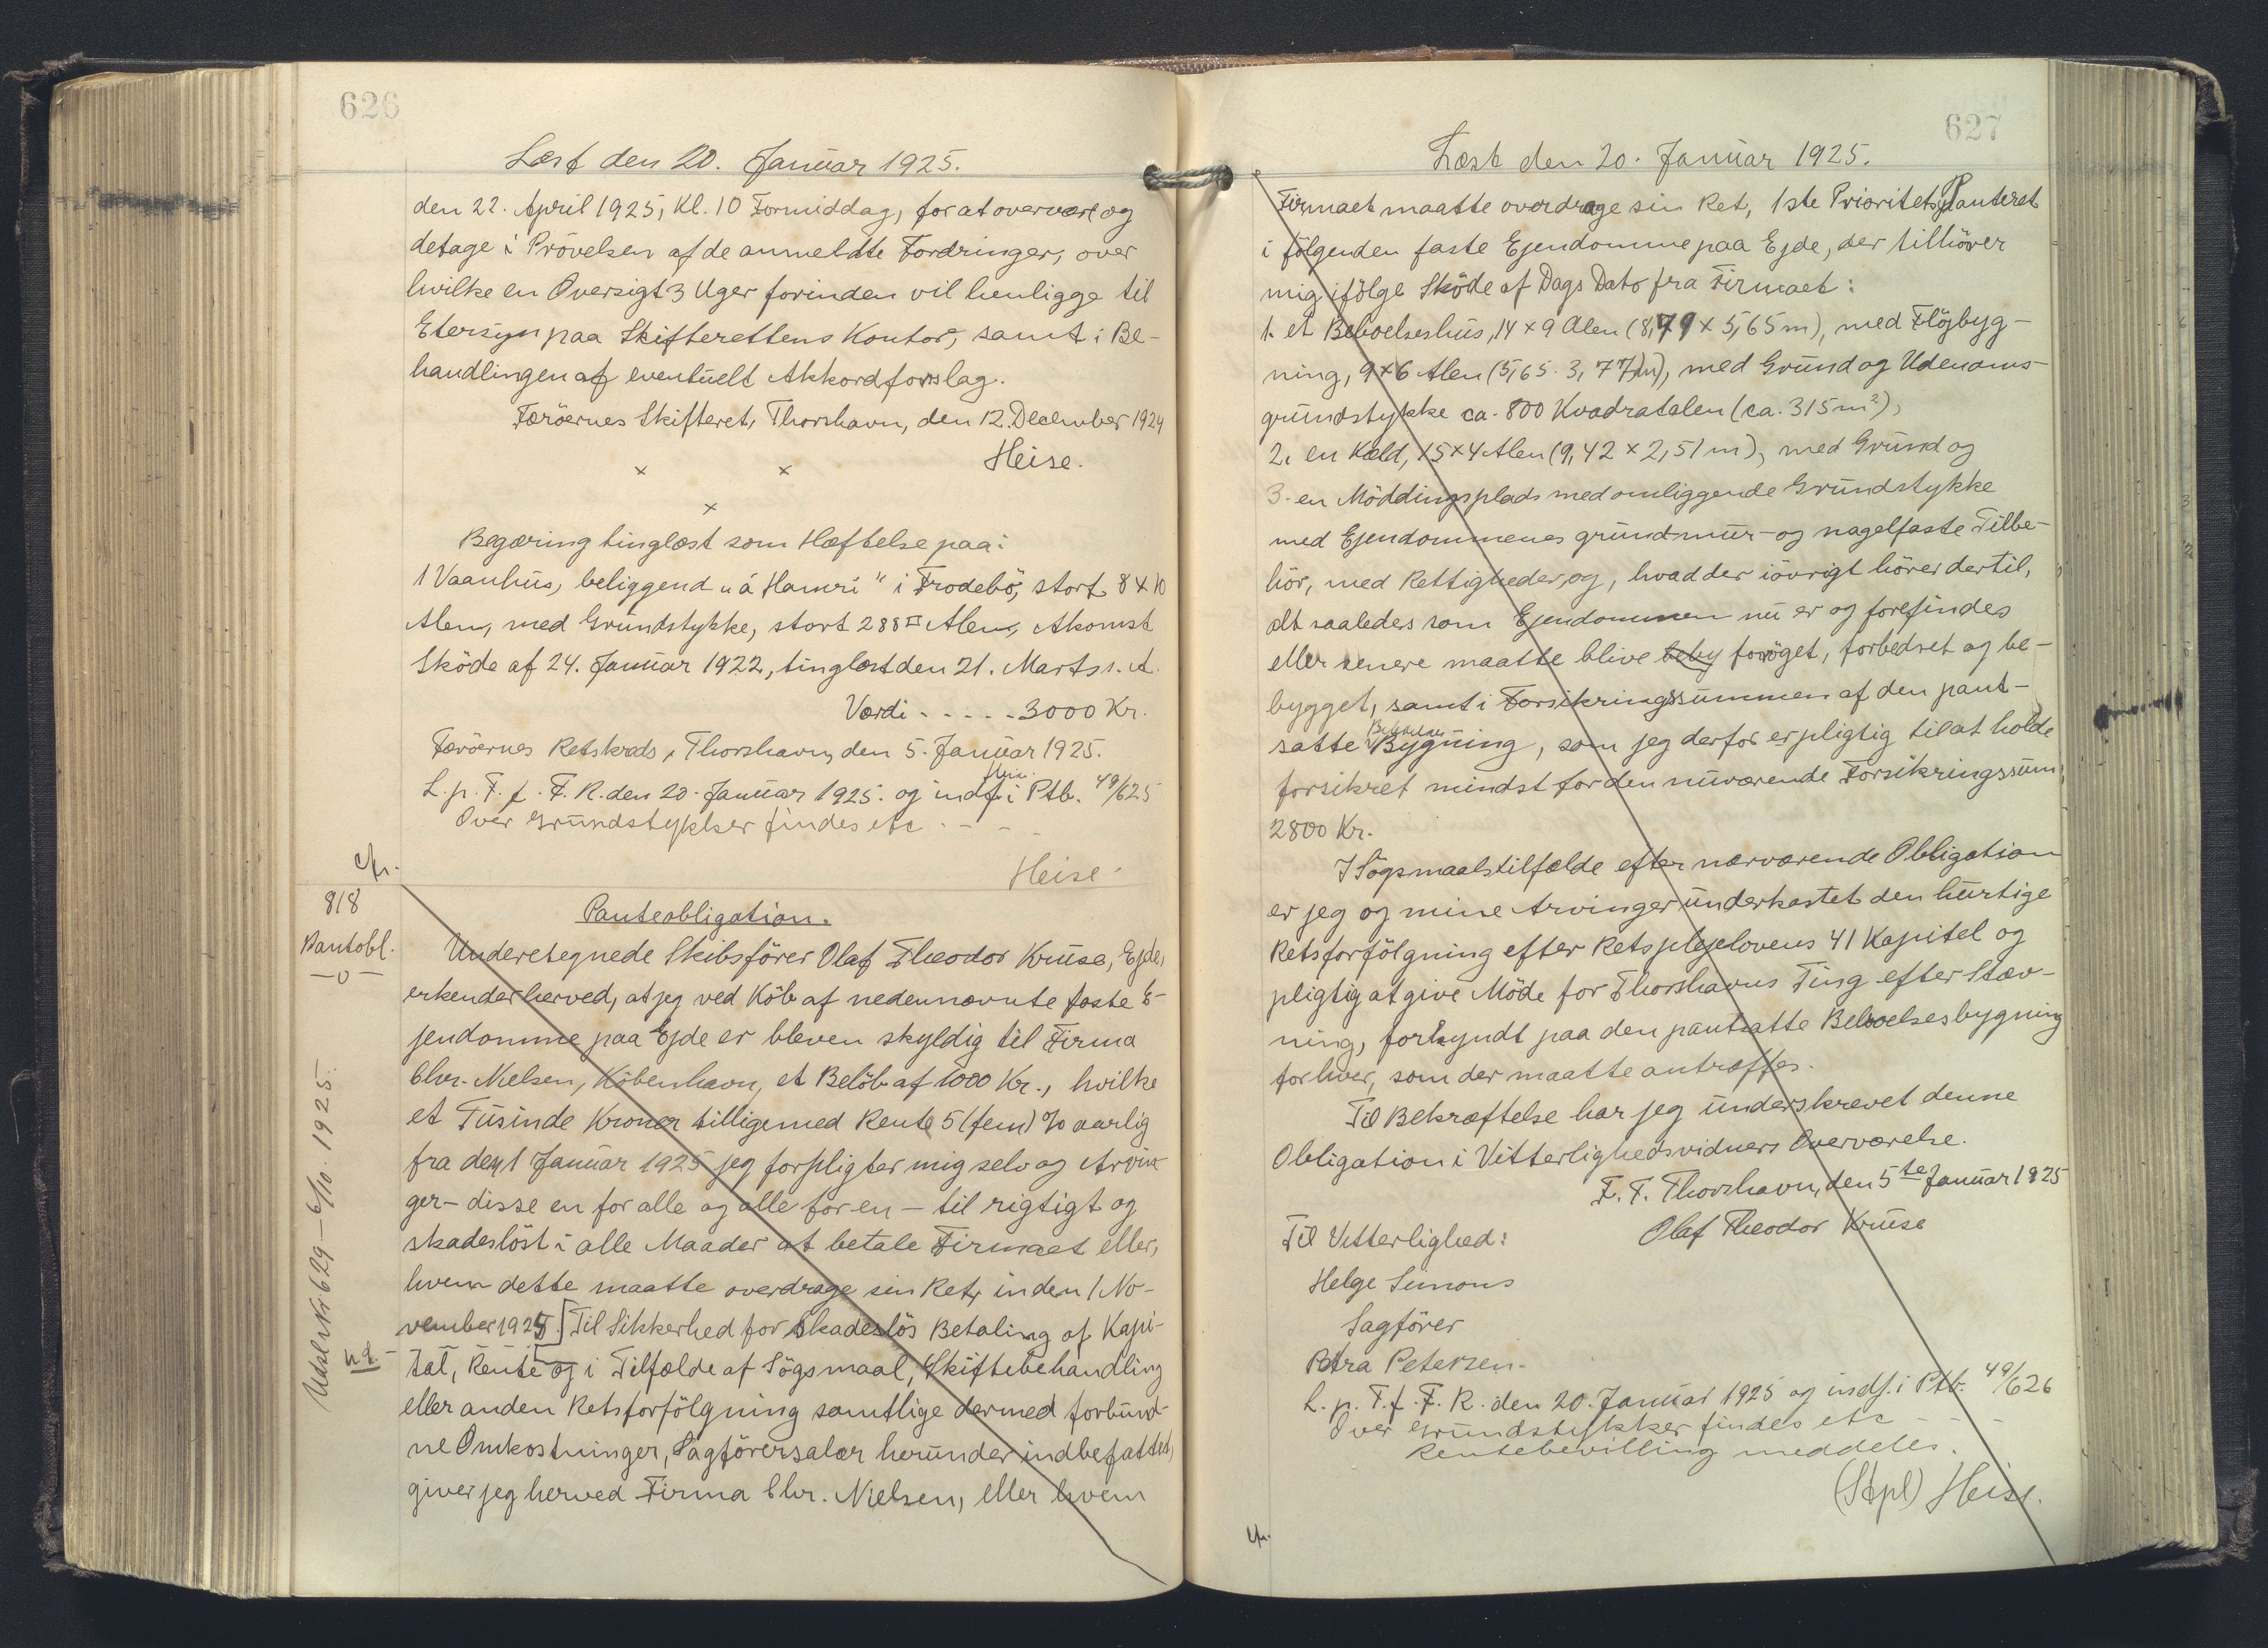 626
Læst den 20. Januar 1925.
den 22. April 1925, Kl. 10 Formiddag, for at overvære og
detage i Prövelsen af de anmeldte Fordringer, over
hvilke en Oversigt 3 Uger forinden vil henligge til
Etersyn paa Skifterettens Kontor, samt i Be-
handlingen af eventuelt Akkordforslag.
Færöernes Skifteret, Thorshavn, den 12. December 1924
Heise.
x x
x
Begæring tinglæst som Hæftelse paa:
1 Vaanhus, beliggend „á Hamri" i Frodebö, stort 8 x 10
Alen, med Grundstykke, stort 288 □ Alen, Akomst
Sköde af 24. Januar 1922, tinglæst den 21. Marts s. A.
Værdi - - - - - 3000 Kr.
Færöernes Retskreds, Thorshavn, den 5. Januar 1925.
L. p. F. f. F. R. den 20. Januar 1925. og indf. i Ptb. 49/625
Over Grundstykker findes etc - - -
Heise.
cfr.
818
Pantobl.
—o—
Udsl. Nr 629 — 6/10. 1925.
Panteobligation.
Underetegnede Skibsförer Olaf Theodor Kruse, Ejde,
erkender herved, at jeg ved Köb af nedennævnte faste E-
jendomme paa Ejde er bleven skyldig til Firma
Chr. Nielsen, Köbenhavn, et Belöb af 1000 Kr., hvilke
et Tusinde Kroner tilligemed Rente 5 (fem) % aarlig
fra den 1 Januar 1925 jeg forpligter mig selv og Arvin-
ger - disse en for alle og alle for en - til rigtigt og
skadeslöst i alle Maader at betale Firmaet eller,
hvem dette maatte overdrage sin Ret, inden 1 No-
vember 1925.] Til Sikkerhed for skadeslös Betaling af Kapi-
tal, Rente og i Tilfælde af Sögsmaal, Skiftebehandling
eller anden Retsforfölgning samtlige dermed forbund-
ne Omkostninger, Sagförersalær herunder indbefattet,
giver jeg herved Firma Chr. Nielsen, eller hvem
627
Læst den 20. Januar 1925.
Firmaet maatte overdrage sin Ret, 1ste Prioritets Panteret
i fölgenden faste Ejendomme paa Ejde, der tilhörer
mig ifölge Sköde af Dags Dato fra Firmaet:
1. et Beboelseshus, 14 x 9 Alen (8,79 x 5,65 m), med Flöjbyg-
ning, 9 x 6 Alen (5,65. 3,77 m), med Grund og Udenoms-
grundstykke ca. 800 Kvadratalen (ca. 315 m²),
2. en Kæld, 15 x 4 Alen (9,42 x 2,51 m), med Grund og
3. en Möddingsplads med omliggende Grundstykke
med Ejendommenes grundmur- og nagelfaste Tilbe-
hör, med Rettigheder, og, hvad der iövrigt hörer dertil,
alt saaledes som Ejendommen nu er og forefindes
eller senere maatte blive beby foröget, forbedret og be-
bygget, samt i Forsikringssummen af den pant-
satte Bygning, som jeg derfor er pligtig til at holde
forsikret mindst for den nuværende Forsikringssum,
2800 Kr.
I Sögsmaalstilfælde efter nærværende Obligation
er jeg og mine Arvinger underkastet den hurtige
Retsforfölgning efter Retsplejelovens 41 Kapitel og
pligtig at give Möde for Thorshavns Ting efter Stæv-
ning, forkyndt paa den pantsatte Beboelsesbygning
for hver, som der maatte antræffes.
Til Bekræftelse har jeg underskrevet denne
Obligation i Vitterlighedsvidners Overværelse.
F. F. Thorshavn, den 5te Januar 1925
Olaf Theodor Kruse
Til Vitterlighed:
Helge Simons
Sagförer
Petra Petersen.
L. p. F. f. F. R. den 20. Januar 1925 og indf. i Ptb. 49/626
Over Grundstykker findes etc - - -
Rentebevilling meddeles.
(Stpl) Heise.
cfr.